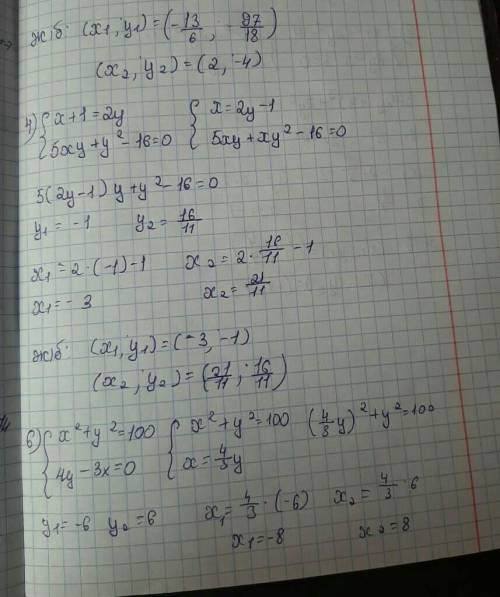 ж/б: (x₁; y₁) = (-13/6; -97/18)
(x₂; y₂) = (2; -4)
4) { x+1=2y { x=2y-1
5xy+y²-16=0 5xy+xy²-16=0
5(2y-1)y+y²-16=0
y₁=-1 y₂=16/11
x₁=2·(-1)-1 x₂=2·16/11-1
x₁=-3 x₂=21/11
ж/б: (x₁, y₁)=(-3, -1)
(x₂; y₂)=(21/11; 16/11)
6) { x²+y²=100 { x²+y²=100 (4/3y)²+y²=100
4y-3x=0 x=4/3y
y₁=-6 y₂=6 x₁=4/3·(-6) x₂=4/3·6
x₁=-8 x₂=8